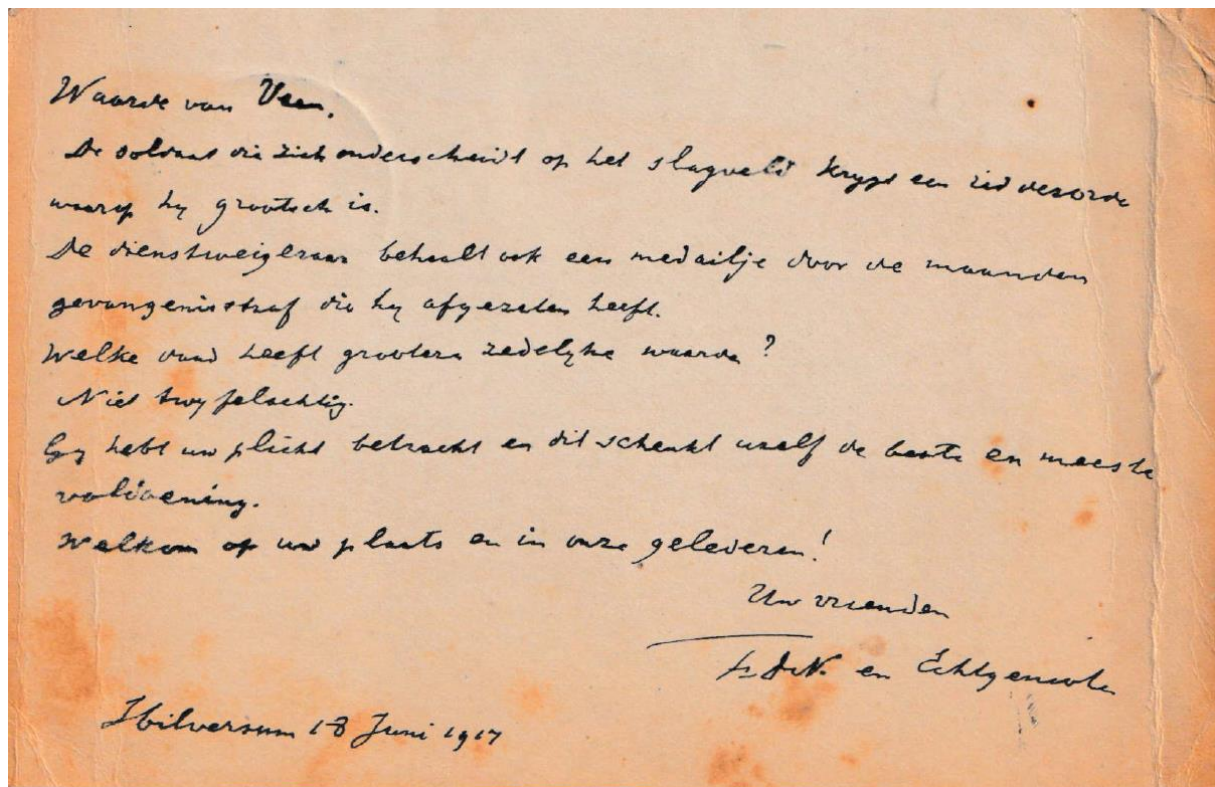 Waarde van Veen,
De soldaat die zich onderscheidt op het slagveld krygt een ridderorde
waarop hy grootsch is.
De dienstweigeraar behaalt ook een medailje door de maanden
gevangenisstraf die hy afgezeten heeft.
Welke daad heeft grootere zedelyke waarde?
Niet twyfelachtig.
Gy hebt uw plicht betracht en dit schenkt uzelf de beste en meeste
voldoening.
Welkom op uw plaats en in onze gelederen!
Uw vrienden
F. D. N. en Echtgenoote
Hilversum 18 Juni 1917